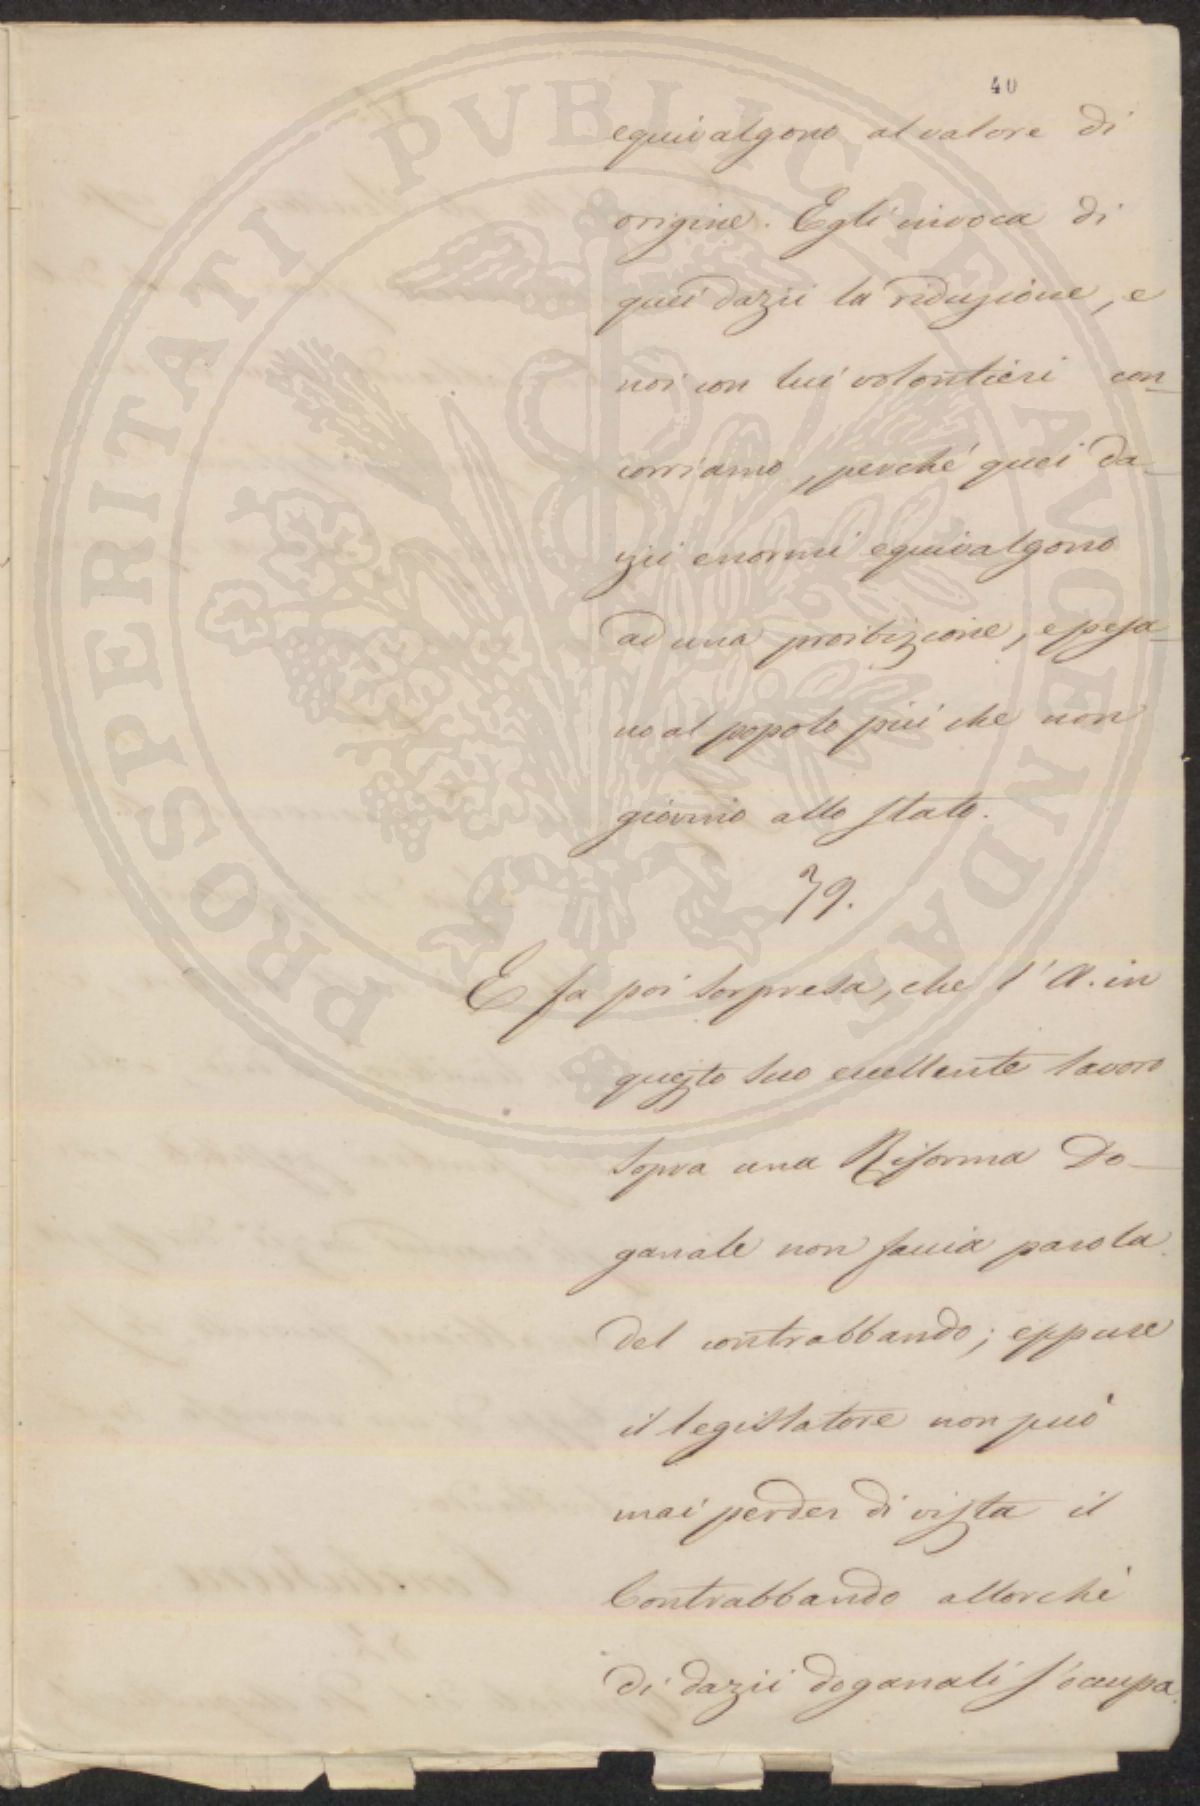 40
equivalgono al valore di
origine. Egli invoca di
quei dazii la riduzione, e
noi con lui volontieri con-
corriamo, perché quei da-
zii enormi equivalgono
ad una proibizione, e pesa-
no al popolo più che non
giovino allo stato.
79.
E fa poi sorpresa, che l'A. in
questo suo eccellente lavoro
sopra una Riforma Do-
ganale non faccia parola
del contrabbando; eppure
il legislatore non può
mai perder di vista il
Contrabbando allorché
di dazii doganali s'occupa.
PROSPERITATI PVBLICAE AVGENDAE